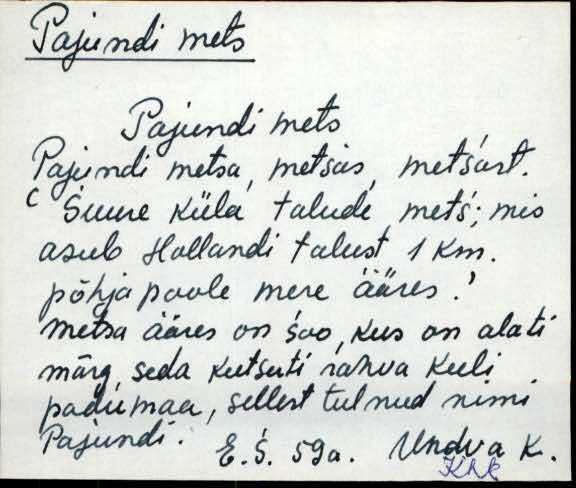 Pajundi mets
Pajundi mets
Pajundi metsa, metsas, metsast.
Suure küla talude mets; mis
asub Hollandi talust 1 km.
põhja poole mere ääres.
Metsa ääres on soo, kus on alati
märg, seda kutsuti rahva keeli
padumaa, sellest tulnud nimi
Pajundi.
E.S. 59a. Undva k.
Khk